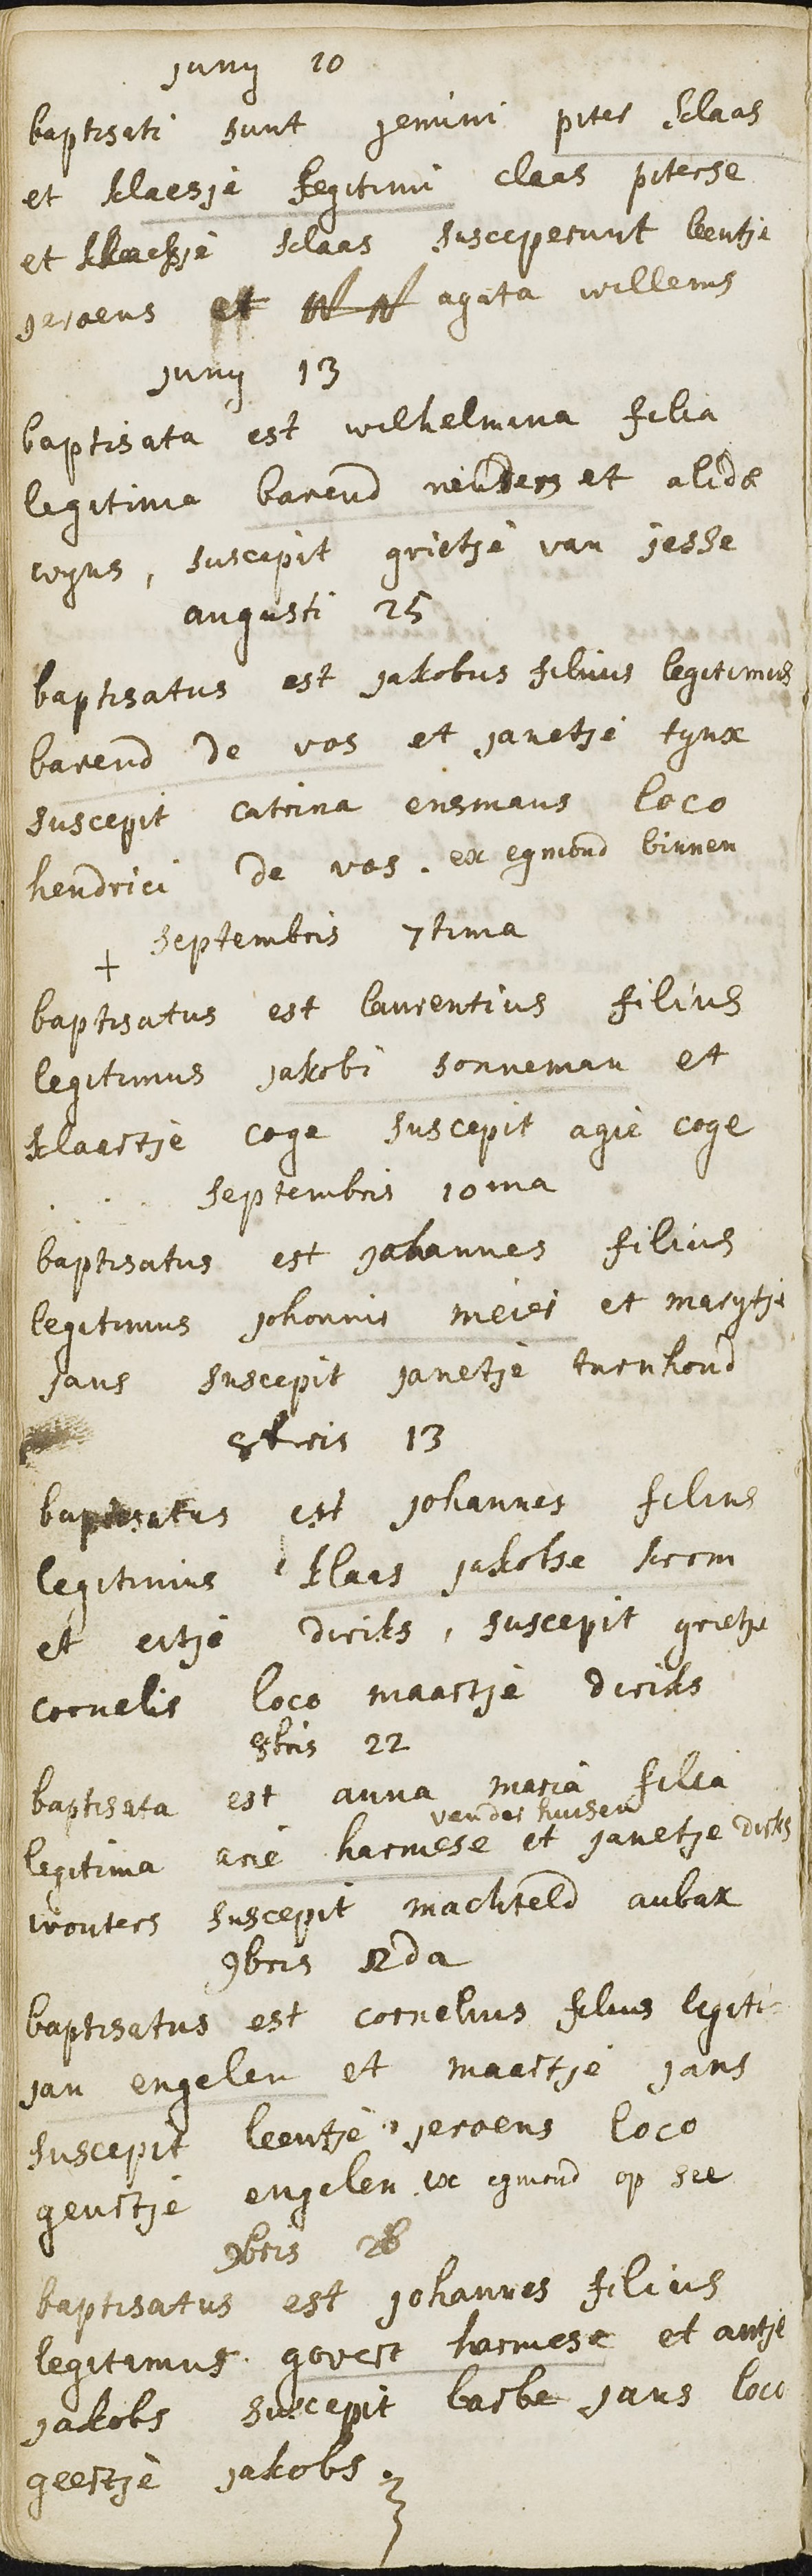 juny 10
baptisati sunt gemini piter klaas
et klaesje legitimi claas piterse
et klaesje klaas susceperunt leentje
jeroens et N N agata willems
juny 13
baptisata est wilhelmina filia
legitima barend reinders et alidæ
wyns, suscepit grietje van jesse
augusti 25
baptisatus est jakobus filius legitimus
barend de vos et janetje tynx
suscepit catrina ensmans loco
hendrici de vos. ex egmond binnen
septembris 7tima
+
baptisatus est laurentius filius
legitimus jakobi sonneman et
klaertje coge suscepit agie coge
septembris 10ma
baptisatus est johannes filius
legitimus johonnis meier et marytje
jans suscepit janetje turnhoud
8bris 13
baptisatus est johannes filius
legitimus klaas jakobse krom
et eitje diriks, suscepit grietje
cornelis loco maartje diriks
8bris 22
baptisata est anna maria filia
van der huisen
legitima arie harmese et janetje dirks
wouters suscepit machteld aubax
9bris 12da
baptisatus est cornelius filius legiti-
jan engelen et maartje jans
suscepit leentje jeroens loco
geurtje engelen ex egmond op see
9bris 26
baptisatus est johannes filius
legitimus govert harmese et antje
jakobs suscepit barbe jans loco
geertje jakobs.